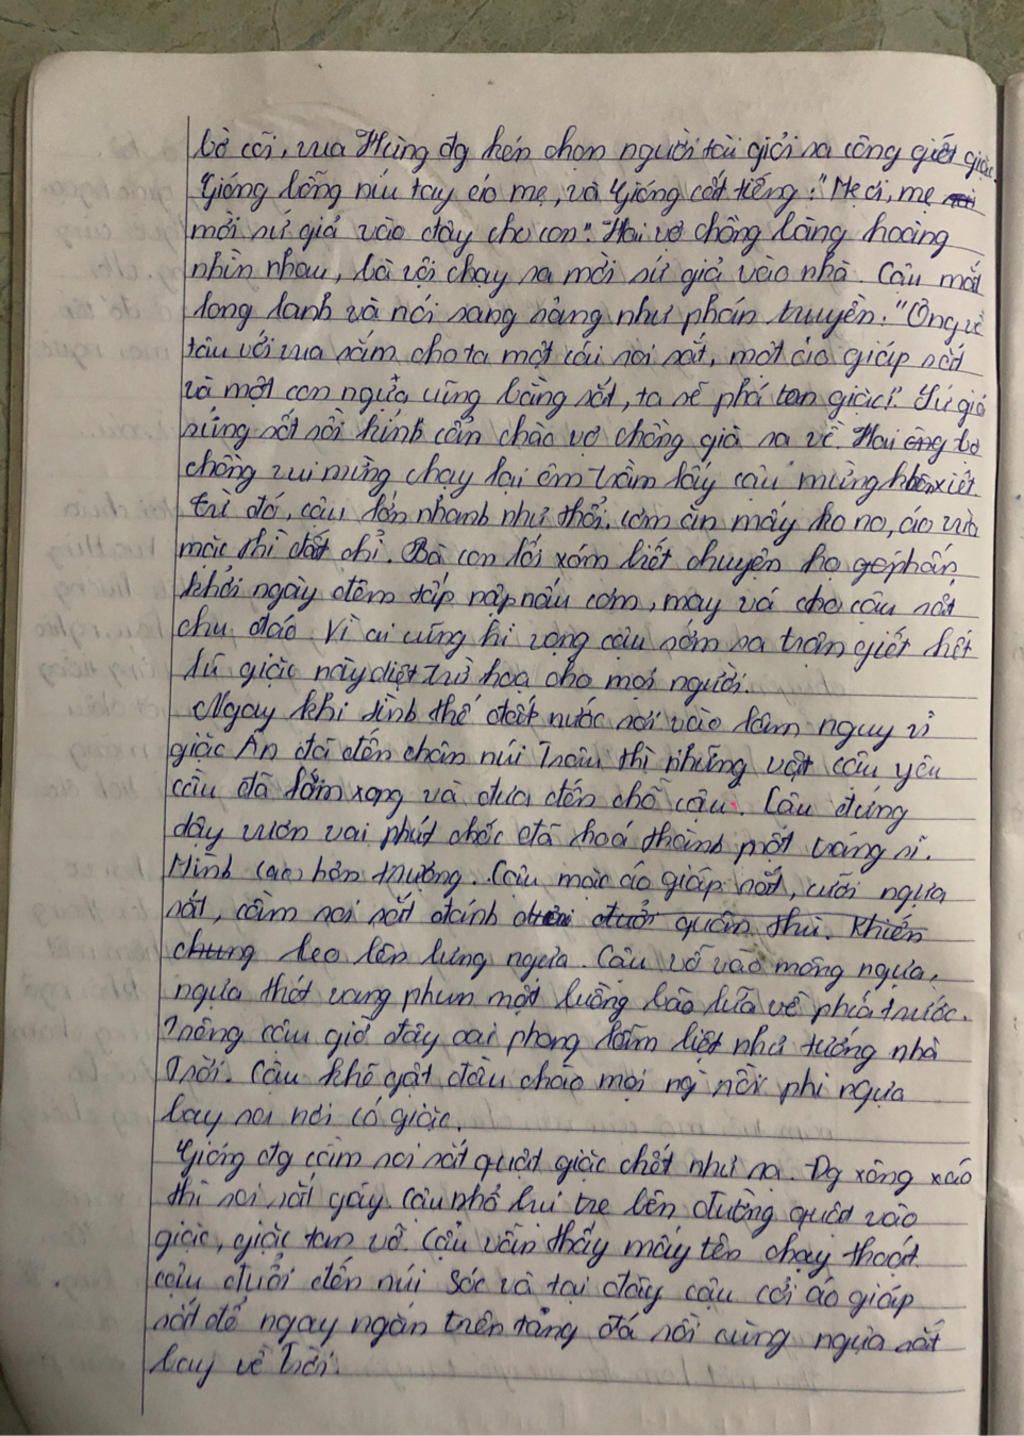 bờ cõi, vua Hùng đg kén chọn người tài giỏi ra công giết giặc.
Gióng bỗng níu tay áo mẹ, và Gióng cất tiếng: "Mẹ ơi, mẹ
mời sứ giả vào đây cho con". Hai vợ chồng bàng hoàng
nhìn nhau, bà vội chạy ra mời sứ giả vào nhà. Cậu mắt
long lanh và nói sang sảng như phán truyền: "Ông về
tâu với vua sắm cho ta một cái roi sắt, một áo giáp sắt
và một con ngựa cũng bằng sắt, ta sẽ phá tan giặc!" Sứ giả
sửng sốt rồi kính cẩn chào vợ chồng già ra về. Hai ông bà
chồng vui mừng chạy lại ôm trầm lấy cậu mừng khôn xiết.
Từ đó, cậu lớn nhanh như thổi, cơm ăn mấy ko no, áo vừa
mặc thì đứt chỉ. Bà con lối xóm biết chuyện họ phấn
khởi ngày đêm tấp nập nấu cơm, may vá cho cậu rất
chu đáo. Vì ai cũng hi vọng cậu sớm ra trận giết hết
lũ giặc này diệt trừ hoạ cho mọi người.
Ngay khi tình thế đất nước rơi vào lâm nguy vì
giặc Ân đã đến chân núi Trâu thì những vật cậu yêu
cầu đã làm xong và đưa đến chỗ cậu. Cậu đứng
dậy vươn vai phút chốc đã hoá thành một tráng sĩ.
Mình cao hơn trượng. Cậu mặc áo giáp sắt, cưỡi ngựa
sắt, cầm roi sắt đánh đuổi quân thù. Khiến
chung leo lên lưng ngựa. Cậu vỗ vào mông ngựa,
ngựa thét vang phun một luồng bão lửa về phía trước.
Trông cậu giờ đây oai phong lẫm liệt như tướng nhà
Trời. Cậu khẽ gật đầu chào mọi ng rồi phi ngựa
bay ra nơi có giặc.
Gióng đg cầm roi sắt quật giặc chết như rạ. Đg xông xáo
thì roi sắt gãy. Cậu nhổ bụi tre bên đường quật vào
giặc, giặc tan vỡ. Cậu vẫn thấy mấy tên chạy thoát.
cậu đuổi đến núi Sóc và tại đây cậu cởi áo giáp
sắt để ngay ngắn trên tảng đá rồi cùng ngựa sắt
bay về trời.